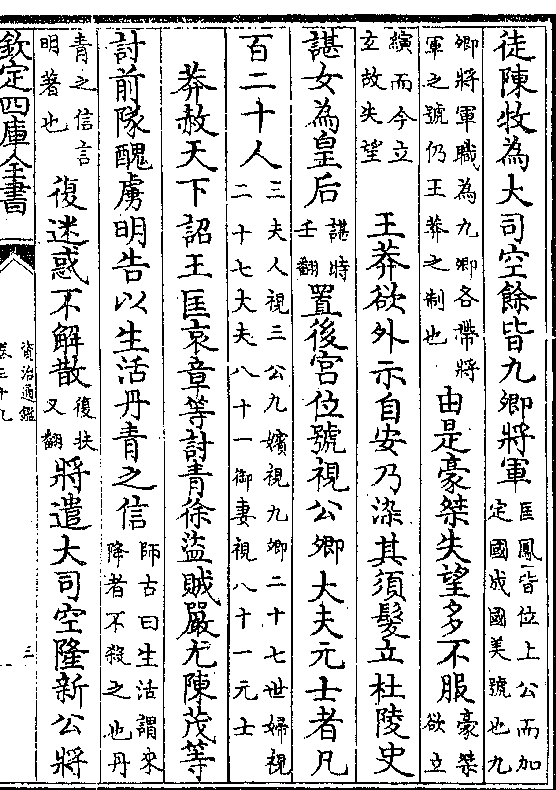 徒陳牧為大司空餘皆九卿將軍匡鳳皆位上公而加定國成國美號也九
卿將軍職為九卿各帶將軍之號仍王莽之制也由是豪桀失望多不服豪桀欲立
縯而今立立故失望王莽欲外示自安乃染其須髮立杜陵史
諶女為皇后諶時壬翻置後宮位號視公卿大夫元士者凡
百二十人三夫人視三公九嬪視九卿二十七世婦視二十七大夫八十一御妻視八十一元士
莽赦天下詔王匡哀章等討青徐盜賊嚴尤陳茂等
討前隊醜虜明告以生活丹青之信師古曰生活謂來降者不殺之也丹
青之信言明著也復迷惑不解散復扶又翻將遣大司空隆新公將
欽定四庫全書
資治通鑑
卷三十九
三